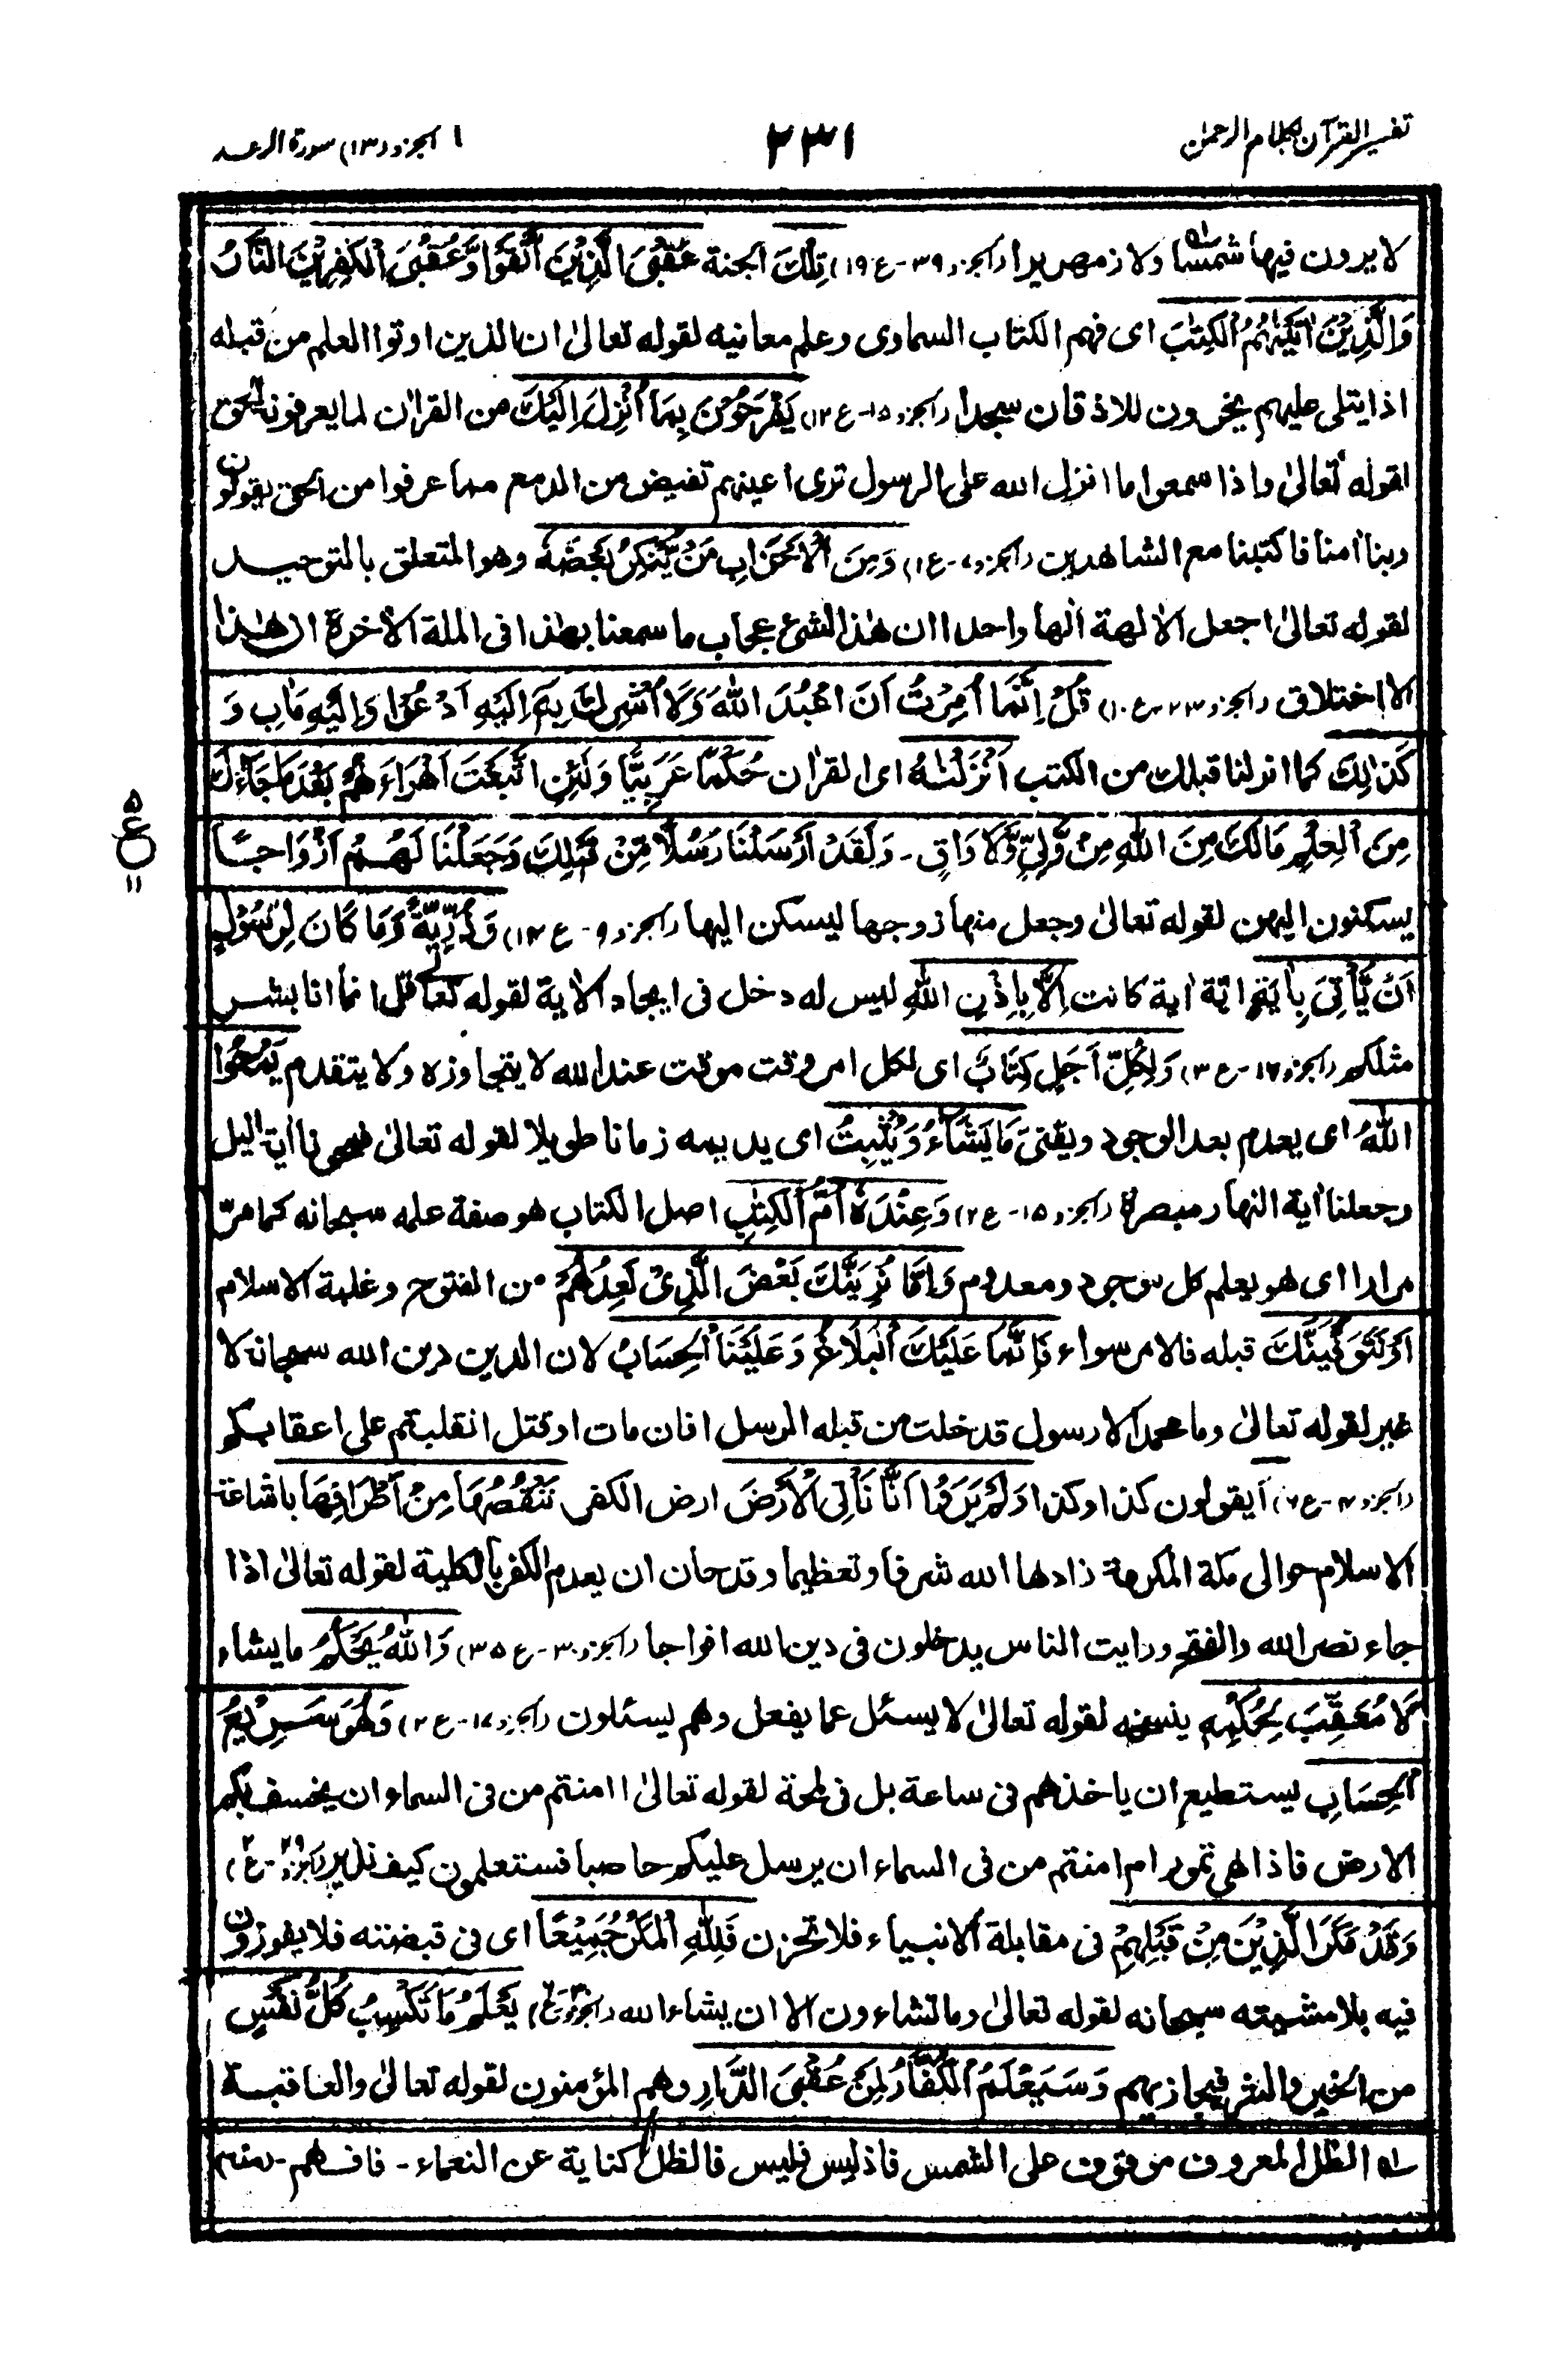 تفسير القرآن بكلام الرحمٰن
٢٣١
الجزء (١٣) سورة الرعد
لا يرون فيها شمسا ولا زمهريرا (الجزء ٢٩-ع ١٩) تِلْكَ الجنة عُقْبَى الَّذِيْنَ اتَّقَوْا وَّعُقْبَى الْكٰفِرِيْنَ النَّارُ
وَالَّذِيْنَ اٰتَيْنٰهُمُ الْكِتٰبَ اى فهم الكتاب السماوى وعلم معانيه لقوله تعالىٰ ان الذين اوتوا العلم من قبله
اذا يتلى عليهم يخرون للاذقان سجدا (الجزء ١٥-ع ١٢) يَفْرَحُوْنَ بِمَا اُنْزِلَ اِلَيْكَ من القراٰن لما يعرفونه الحق
لقوله تعالىٰ واذا سمعوا ما انزل الله على الرسول ترى اعينهم تفيض من الدمع مما عرفوا من الحق يقولون
ربنا اٰمنا فاكتبنا مع الشاهدين (الجزء ٧-ع ١) وَمِنَ الْاَحْزَابِ مَنْ يُّنْكِرُ بَعْضَهٗ وهو المتعلق بالتوحيد
لقوله تعالىٰ اجعل الاٰلهة الٰها واحدا ان هٰذا لشئ عجاب ما سمعنا بهٰذا فى الملة الاٰخرة ان هٰذا
الا اختلاق (الجزء ٢٣-ع ١٠) قُلْ اِنَّمَا اُمِرْتُ اَنْ اَعْبُدَ اللهَ وَلَا اُشْرِكَ بِهٖ اِلَيْهِ اَدْعُوْا وَاِلَيْهِ مَاٰبِ وَ
كَذٰلِكَ كما انزلنا قبلك من الكتب اَنْزَلْنٰهُ اى القراٰن حُكْمًا عَرَبِيًّا وَلَئِنِ اتَّبَعْتَ اَهْوَاءَهُمْ بَعْدَ مَا جَاءَكَ
مِنَ الْعِلْمِ مَالَكَ مِنَ اللهِ مِنْ وَّلِىٍّ وَّلَا وَاقٍ - وَلَقَدْ اَرْسَلْنَا رُسُلًا مِّنْ قَبْلِكَ وَجَعَلْنَا لَهُمْ اَزْوَاجًا
يسكنون اليهن لقوله تعالىٰ وجعل منها زوجها ليسكن اليها (الجزء ٩-ع ١٤) وَّذُرِّيَّةً وَمَا كَانَ لِرَسُوْلٍ
اَنْ يَّأْتِىَ بِاٰيَةٍ اية اٰية كانت اِلَّا بِاِذْنِ اللهِ ليس له دخل فى ايجاد الاٰية لقوله تعالى قل انما انا بشر
مثلكم (الجزء ١٦-ع ٣) وَلِكُلِّ اَجَلٍ كِتَابٌ اى لكل امر وقت موقت عند الله لا يتجاوزه ولا يتقدم يَمْحُوا
اللهُ اى يعدم بعد الوجود ويفنى مَا يَشَاءُ وَيُثْبِتُ اى يديمه زمانا طويلا لقوله تعالىٰ فمحونا اٰية اليل
وجعلنا اٰية النهار مبصرة (الجزء ١٥-ع ٢) وَعِنْدَهٗ اُمُّ الْكِتٰبِ اصل الكتاب هو صفة علمه سبحانه كما مرّ
مرارا اى هو يعلم كل موجود ومعدوم وَاِمَّا نُرِيَنَّكَ بَعْضَ الَّذِىْ نَعِدُهُمْ من الفتوح وغلبة الاسلام
اَوْ نَتَوَفَّيَنَّكَ قبله فالامر سواء فَاِنَّمَا عَلَيْكَ الْبَلَاغُ وَعَلَيْنَا الْحِسَابُ لان الدين دين الله سبحانه لا
غير لقوله تعالىٰ وما محمد الا رسول قد خلت من قبله الرسل افان مات او قتل انقلبتم على اعقابكم
(الجزء ٤-ع ٦) اَيقولون كذا وكذا وَلَمْ يَرَوْا اَنَّا نَأْتِى الْاَرْضَ ارض الكفر نَنْقُصُهَا مِنْ اَطْرَافِهَا باشاعة
الاسلام حوالى مكة المكرمة زادها الله شرفا وتعظيما وقد حان ان يعدم الكفر بالكلية لقوله تعالىٰ اذا
جاء نصر الله والفتح ورايت الناس يدخلون فى دين الله افواجا (الجزء ٣٠-ع ٣٥) وَاللهُ يَحْكُمُ ما يشاء
لَا مُعَقِّبَ لِحُكْمِهٖ ينسخه لقوله تعالىٰ لا يسئل عما يفعل وهم يسئلون (الجزء ١٧-ع ٢) وَهُوَ سَرِيْعُ
الْحِسَابِ يستطيع ان ياخذهم فى ساعة بل فى لمحة لقوله تعالىٰ اامنتم من فى السماء ان يخسف بكم
الارض فاذا هى تمور ام امنتم من فى السماء ان يرسل عليكم حاصبا فستعلمون كيف نذير (الجزء ٢٩-ع ٢)
وَقَدْ مَكَرَ الَّذِيْنَ مِنْ قَبْلِهِمْ فى مقابلة الانبياء فلا تحزن فَلِلّٰهِ الْمَكْرُ جَمِيْعًا اى فى قبضته فلا يفوزون
فيه بلا مشيته سبحانه لقوله تعالىٰ وما تشاءون الا ان يشاء الله يَعْلَمُ مَا تَكْسِبُ كُلُّ نَفْسٍ
من الخير والشر فيجازيهم وَسَيَعْلَمُ الْكُفَّارُ لِمَنْ عُقْبَى الدَّارِ وهم المؤمنون لقوله تعالىٰ والعاقبة
له الظل المعروف موقوف على الشمس فاذ ليس فليس فالظل كناية عن النعماء - فافهم - منه
٥
ع
١١